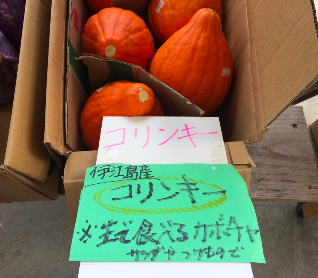 コリンキー
伊江島産
コリンキー
※生で食べるカボチャ
サラダや つけもので